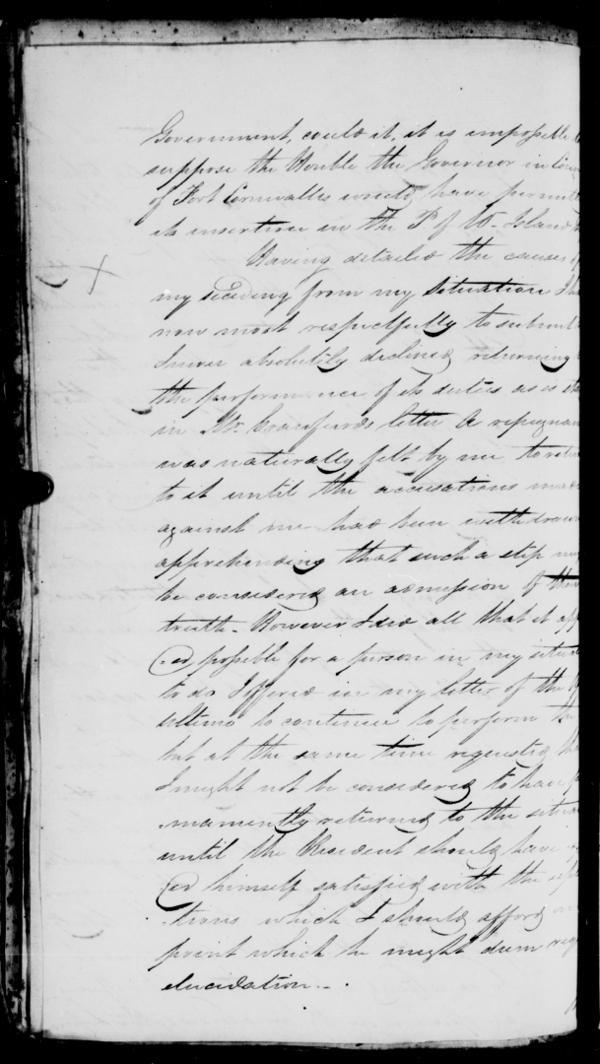 Government, could it, it is impossible
suppose the Honble the Governor in Coun
of Fort Cornwallis would have permit
its insertion in the P. of W. Island
Having detailed the causes of
my seceding from my situation I
now most respectfully to submit
I never absolutely declined returning
the performance of its duties as is
in Mr. Crawfurds letter A repugnan
was naturally felt by me to retu
to it until the accusations made
against me had been withdrawn
apprehending that such a step m
be considered an admission of their
truth. However I did all that it app
.ed possible for a person in my situa
to do I offered in my letter of the
ultimo to continue to perform the
but at the same time requested tha
I might not be considered to have p
.manently returned to the situa
until the Resident should have
.ed himself satisfied with the
.tions which I should afford
point which he might deem req
elucidation..